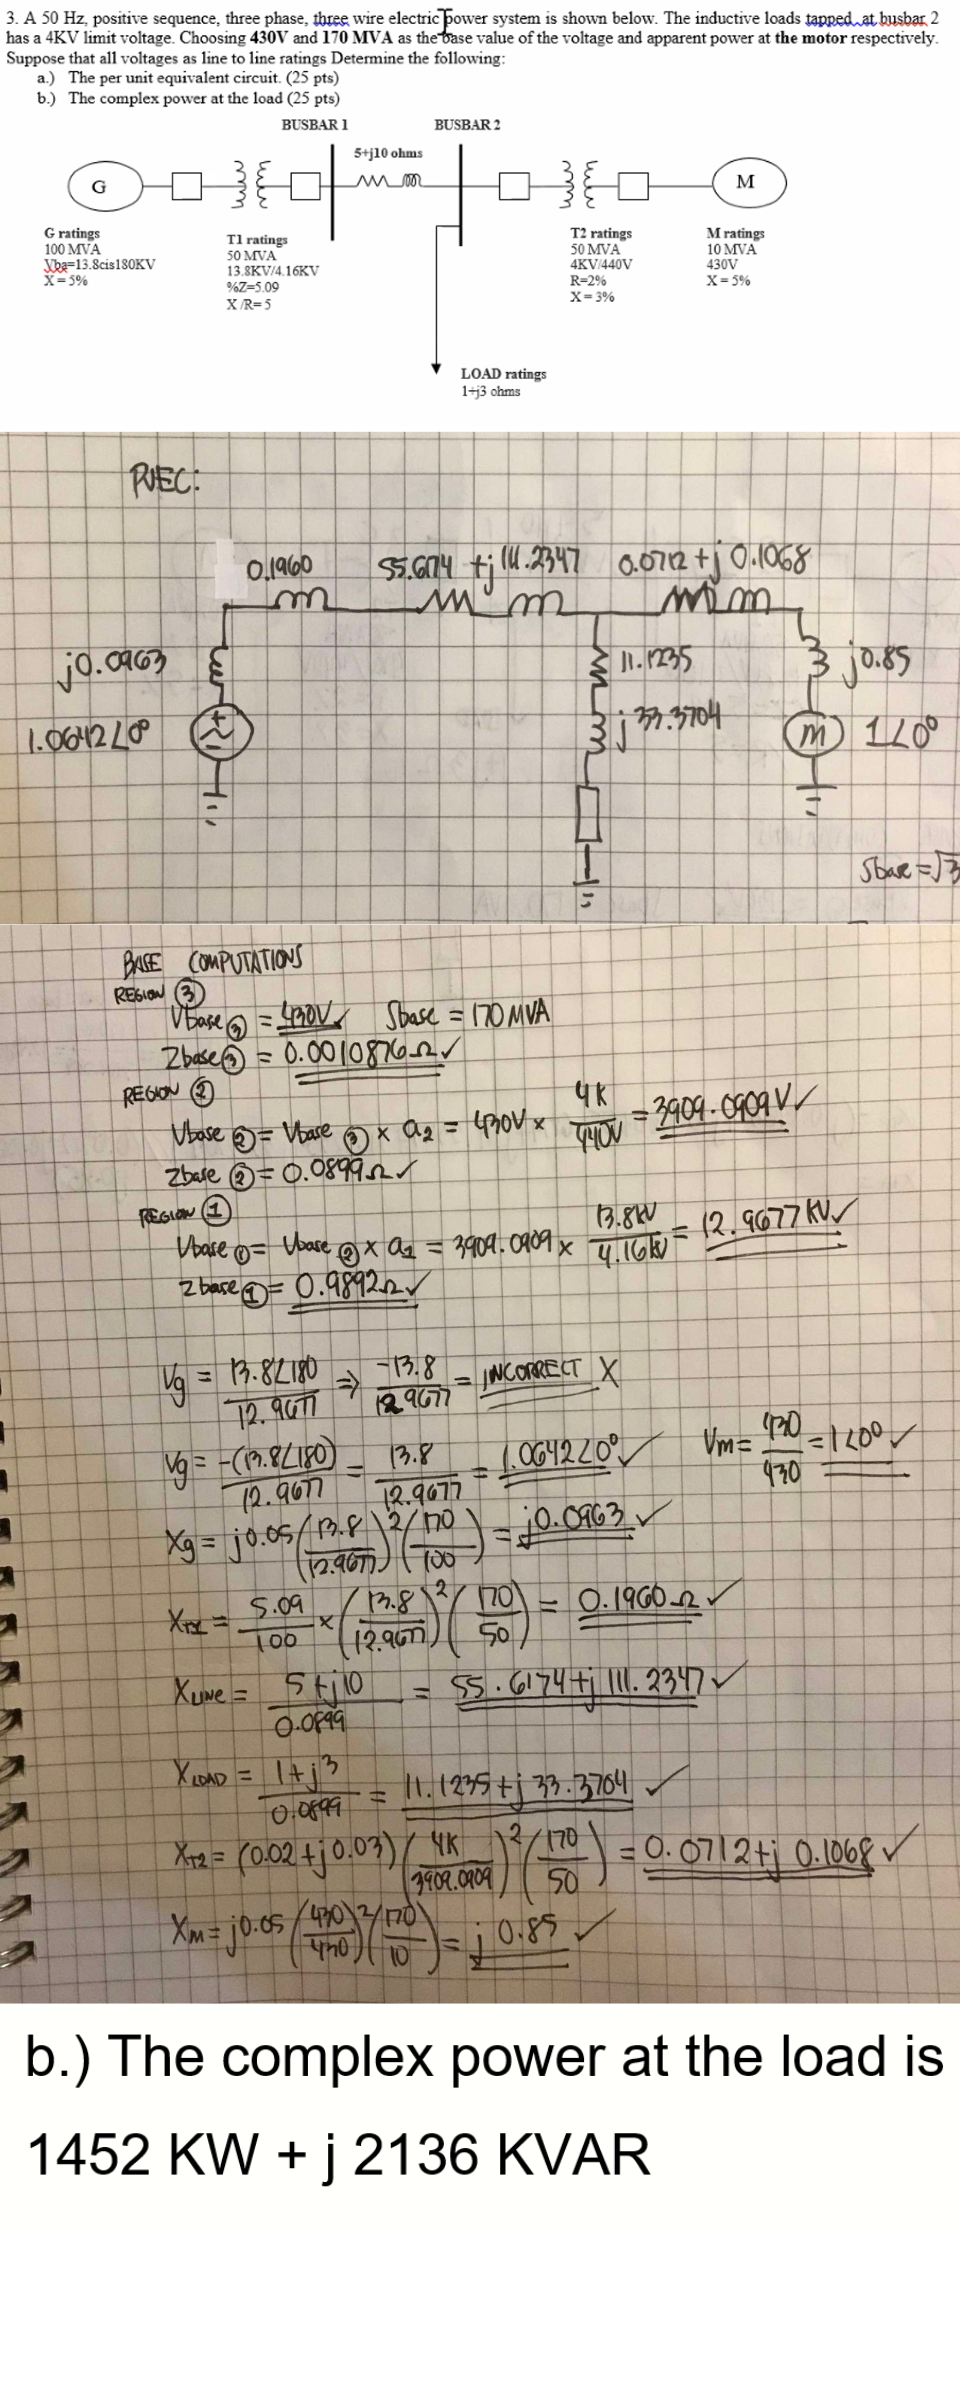 3. A 50 Hz, positive sequence, three phase, three wire electric power system is shown below. The inductive loads tapped at busbar 2
has a 4KV limit voltage. Choosing 430V and 170 MVA as the base value of the voltage and apparent power at the motor respectively.
Suppose that all voltages as line to line ratings Determine the following:
a.) The per unit equivalent circuit. (25 pts)
b.) The complex power at the load (25 pts)
BUSBAR 1
BUSBAR 2
5+j10 ohms
G
M
G ratings
100 MVA
Vba=13.8cis180KV
X = 5%
T1 ratings
50 MVA
13.8KV/4.16KV
%Z=5.09
X /R= 5
T2 ratings
50 MVA
4KV/440V
R=2%
X = 3%
M ratings
10 MVA
430V
X = 5%
LOAD ratings
1+j3 ohms
PUEC:
0.1960
55.6174 + j 111.2347
0.0712 + j 0.1068
j0.0963
11.1235
j0.85
1.0642∠0°
j 33.3704
m
1∠0°
Sbase = √3
BASE COMPUTATIONS
REGION ③
Vbase ③ = 430V ✓ Sbase = 170 MVA
Zbase ③ = 0.0010876 Ω ✓
REGION ②
Vbase ② = Vbase ③ × a2 = 430V × 4K/440V = 3909.0909 V ✓
Zbase ② = 0.0899 Ω ✓
REGION ①
Vbase ① = Vbase ② × a1 = 3909.0909 × 13.8kV/4.16kV = 12.9677 KV ✓
Zbase ① = 0.9892 Ω ✓
Vg = 13.8∠180/12.9677 ⇒ -13.8/12.9677 = INCORRECT X
Vg = -(13.8∠180)/12.9677 = 13.8/12.9677 = 1.0642∠0° ✓
Vm = 430/430 = 1∠0° ✓
Xg = j0.05 (13.8/12.9677)² (170/100) = j0.0963 ✓
XT1 = 5.09/100 × (13.8/12.9677)² (170/50) = 0.1960 Ω ✓
XLINE = 5+j10/0.0899 = 55.6174 + j 111.2347 ✓
XLOAD = 1+j3/0.0899 = 11.1235 + j 33.3704 ✓
XT2 = (0.02 + j0.03) (4K/3909.0909)² (170/50) = 0.0712 + j 0.1068 ✓
XM = j0.05 (430/430)² (170/10) = j 0.85 ✓
b.) The complex power at the load is
1452 KW + j 2136 KVAR